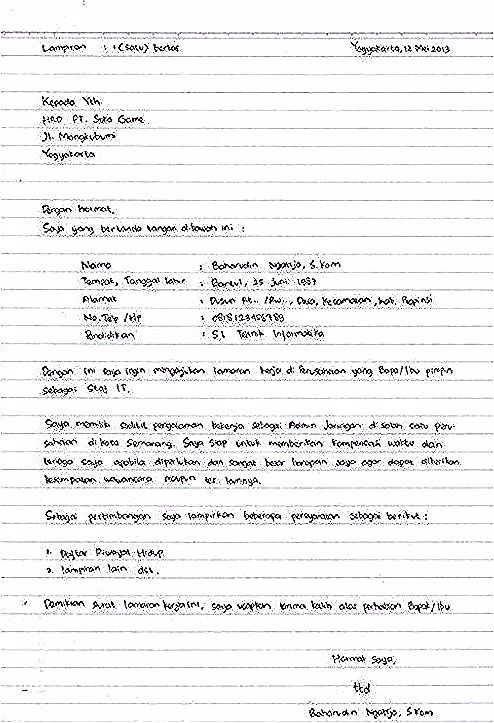 Lampiran : 1 (satu) berkas Yogyakarta, 12 Mei 2013
Kepada Yth.
HRD PT. Suta Game
Jl. Mangkubumi
Yogyakarta
Dengan hormat,
Saya yang bertanda tangan dibawah ini :
Nama : Baharudin Ngatijo, S.Kom
Tempat, Tanggal lahir : Bantul, 25 Juni 1987
Alamat : Dusun Rt.. /Rw.. , Desa, Kecamatan, kab, Propinsi
No. Telp /Hp : 0818123456789
Pendidikan : S.1 Teknik Informatika
Dengan ini saya ingin mengajukan lamaran kerja di Perusahaan yang Bapa/Ibu pimpin
sebagai Staf IT.
Saya memiliki sedikit pengalaman bekerja sebagai Admin Jaringan di salah satu peru-
sahaan di kota Semarang. Saya siap untuk memberikan kompensasi waktu dan
tenaga saya apabila diperlukan dan sangat besar harapan saya agar dapat diberikan
kesempatan wawancara maupun tes lainnya.
Sebagai pertimbangan saya lampirkan beberapa persyaratan sebagai berikut :
1. Daftar Riwayat Hidup
2. lampiran lain dst.
Demikian surat lamaran kerja ini, saya ucapkan terima kasih atas perhatian Bapak/Ibu
Hormat Saya,
ttd
Baharudin Ngatijo, S.Kom